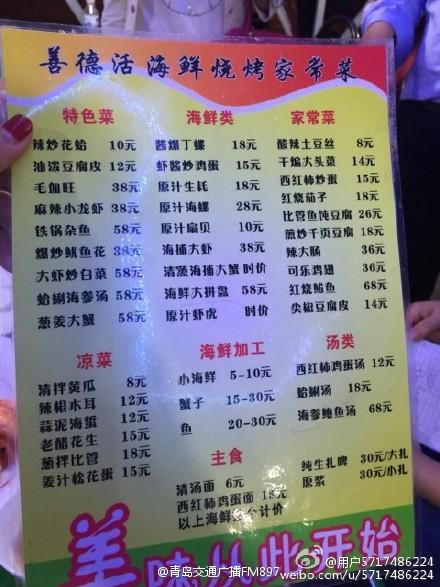 善德活海鲜烧烤家常菜
特色菜
辣炒花蛤 10元
油泼豆腐皮 12元
毛血旺 38元
麻辣小龙虾 38元
铁锅杂鱼 58元
爆炒鱿鱼花 38元
大虾炒白菜 58元
蛤蜊海参汤 58元
葱姜大蟹 58元
海鲜类
酱爆丁螺 18元
虾酱炒鸡蛋 15元
原汁生蚝 18元
原汁海螺 28元
原汁扇贝 10元
海捕大虾 38元
清蒸海捕大蟹 时价
海鲜大拼盘 58元
原汁虾虎 时价
家常菜
酸辣土豆丝 8元
干煸大头菜 14元
西红柿炒蛋 15元
红烧茄子 18元
比管鱼炖豆腐 26元
煎炒千页豆腐 18元
辣大肠 36元
可乐鸡翅 36元
红烧鲐鱼 68元
尖椒豆腐皮 14元
凉菜
清拌黄瓜 8元
辣根木耳 12元
蒜泥海蜇 12元
老醋花生 15元
葱拌比管 18元
姜汁松花蛋 15元
海鲜加工
小海鲜 5-10元
蟹子 15-30元
鱼 20-30元
汤类
西红柿鸡蛋汤 12元
蛤蜊汤 18元
海参鲍鱼汤 68元
主食
清汤面 6元
西红柿鸡蛋面
以上海鲜按个计价
纯生扎啤 30元/大扎
原浆 30元/小扎
美味从此开始
@青岛交通广播FM897
@用户5717486224
weibo.com/u/5717486224